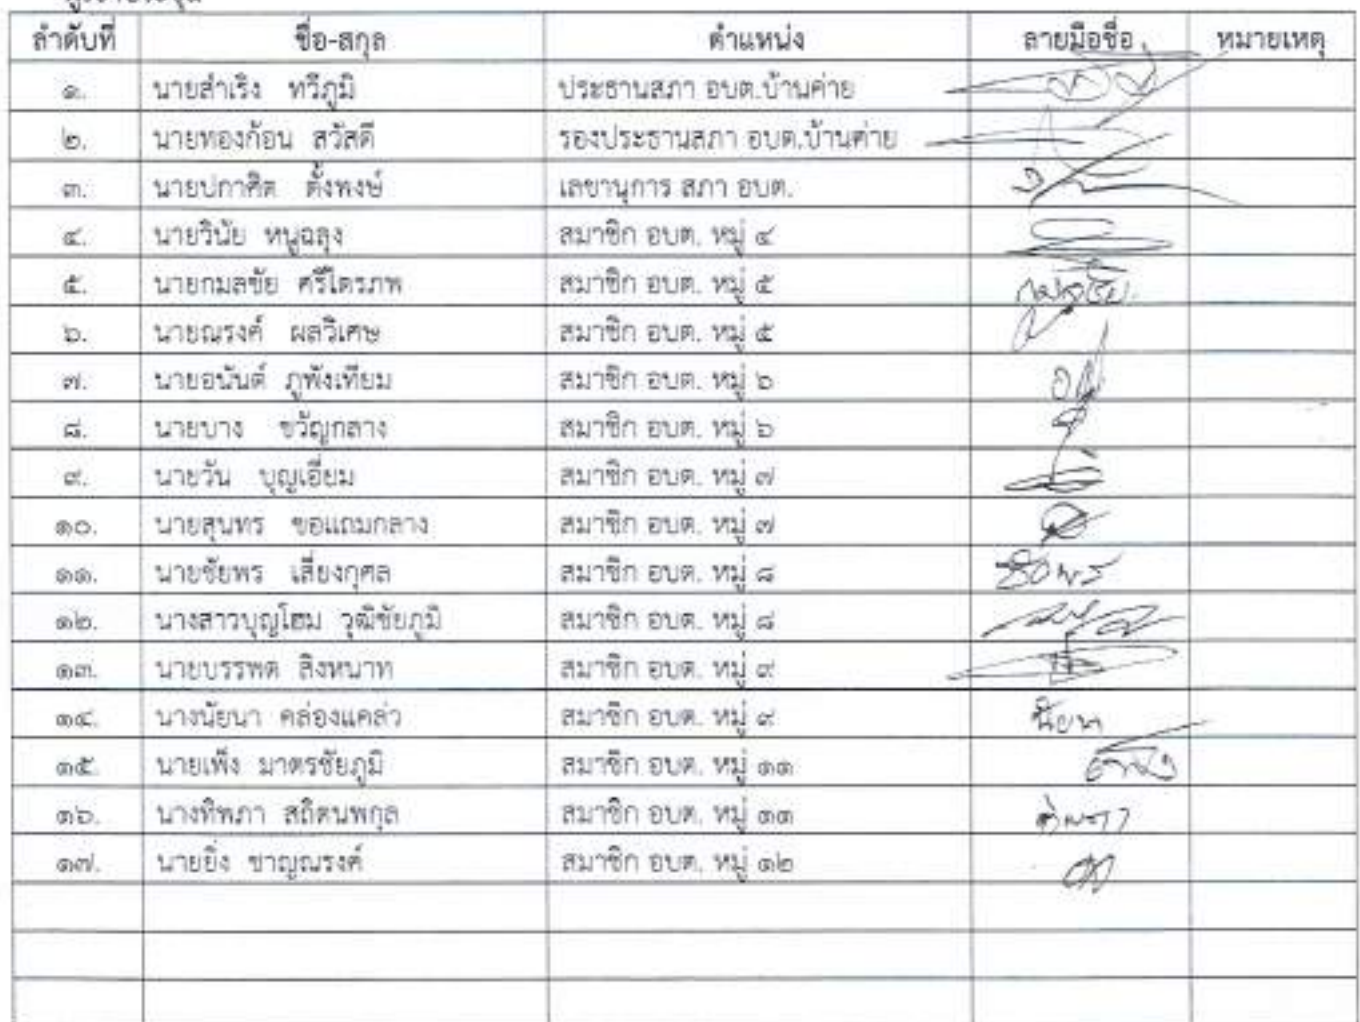 ลำดับที่ ชื่อ-สกุล ตำแหน่ง ลายมือชื่อ หมายเหตุ
๑. นายสำเริง ทวีภูมิ ประธานสภา อบต.บ้านค่าย
๒. นายทองก้อน สวัสดี รองประธานสภา อบต.บ้านค่าย
๓. นายปกาศิต ตั้งพงษ์ เลขานุการ สภา อบต.
๔. นายวินัย หนูฉลุง สมาชิก อบต. หมู่ ๔
๕. นายกมลชัย ศรีไตรภพ สมาชิก อบต. หมู่ ๕
๖. นายณรงค์ ผลวิเศษ สมาชิก อบต. หมู่ ๕
๗. นายอนันต์ ภูพังเทียม สมาชิก อบต. หมู่ ๖
๘. นายบาง ขวัญกลาง สมาชิก อบต. หมู่ ๖
๙. นายวัน บุญเอี่ยม สมาชิก อบต. หมู่ ๗
๑๐. นายสุนทร ขอแถมกลาง สมาชิก อบต. หมู่ ๗
๑๑. นายชัยพร เสี่ยงกุศล สมาชิก อบต. หมู่ ๘ ชัยพร
๑๒. นางสาวบุญโฮม วุฒิชัยภูมิ สมาชิก อบต. หมู่ ๘
๑๓. นายบรรพต สิงหนาท สมาชิก อบต. หมู่ ๙
๑๔. นางนัยนา คล่องแคล่ว สมาชิก อบต. หมู่ ๙ นัยนา
๑๕. นายเพ็ง มาตรชัยภูมิ สมาชิก อบต. หมู่ ๑๑
๑๖. นางทิพภา สถิตนพกุล สมาชิก อบต. หมู่ ๑๑
๑๗. นายยิ่ง ชาญณรงค์ สมาชิก อบต. หมู่ ๑๒